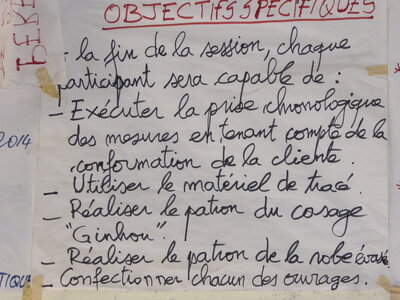 OBJECTIFS SPECIFIQUES
- la fin de la session, chaque
participant sera capable de :
- Exécuter la prise chronologique
des mesures en tenant compte de la
conformation de la cliente.
- Utiliser le matériel de tracé.
- Réaliser le patron du cosage
"Ginhou".
- Réaliser le patron de la robe évasé
- Confectionner chacun des ouvrages.
2014
TIQUE